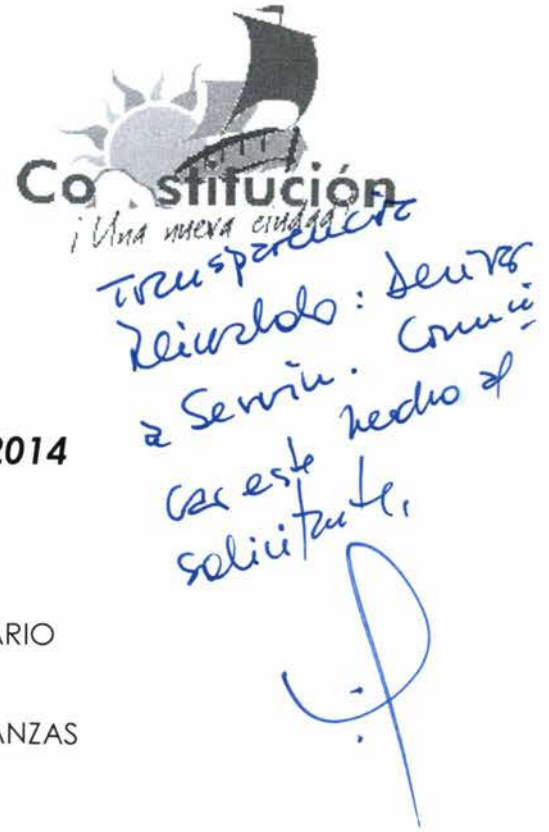 Co stitución
¡Una nueva ciudad!
Transparencia
Reinaldo: Derivar
a Serviu. Comuni
car este hecho al
solicitante.
2014
ARIO
ANZAS